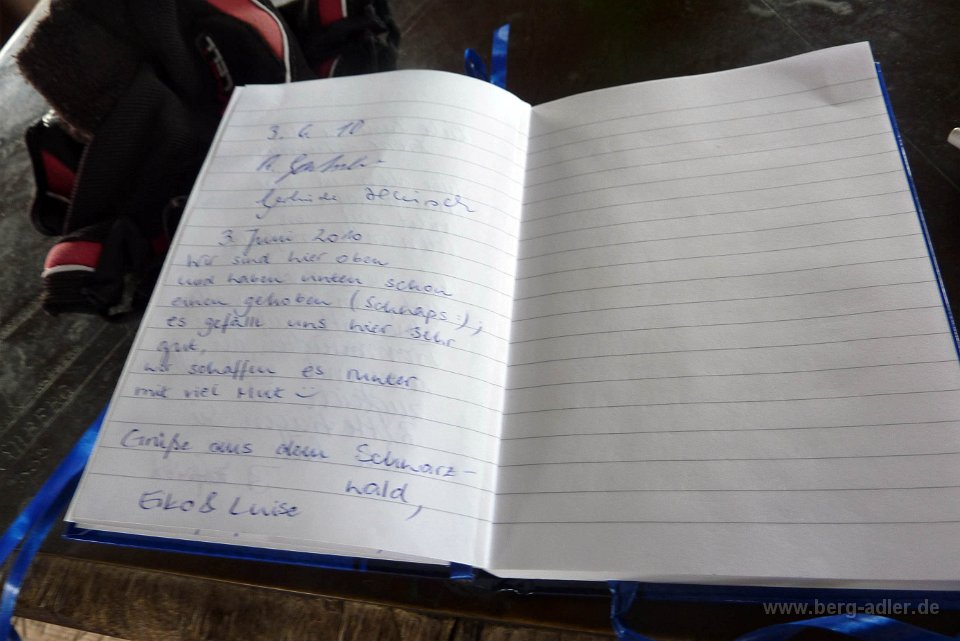 3. 6. 10
3. Juni 2010
wir sind hier oben
und haben unten schon
einen gehoben (Schnaps :),
es gefällt uns hier sehr
gut,
wir schaffen es runter
mit viel Mut
Grüße aus dem Schwarz-
wald,
Eiko & Luise
www.berg-adler.de